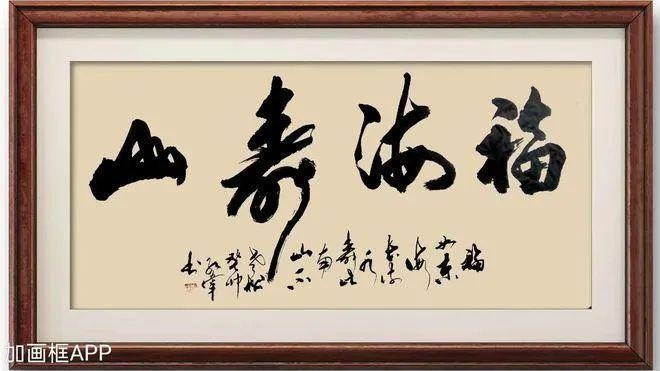 福海寿山
福
如东
海
长流
水
寿比
南
山不
老松
书
加画框APP